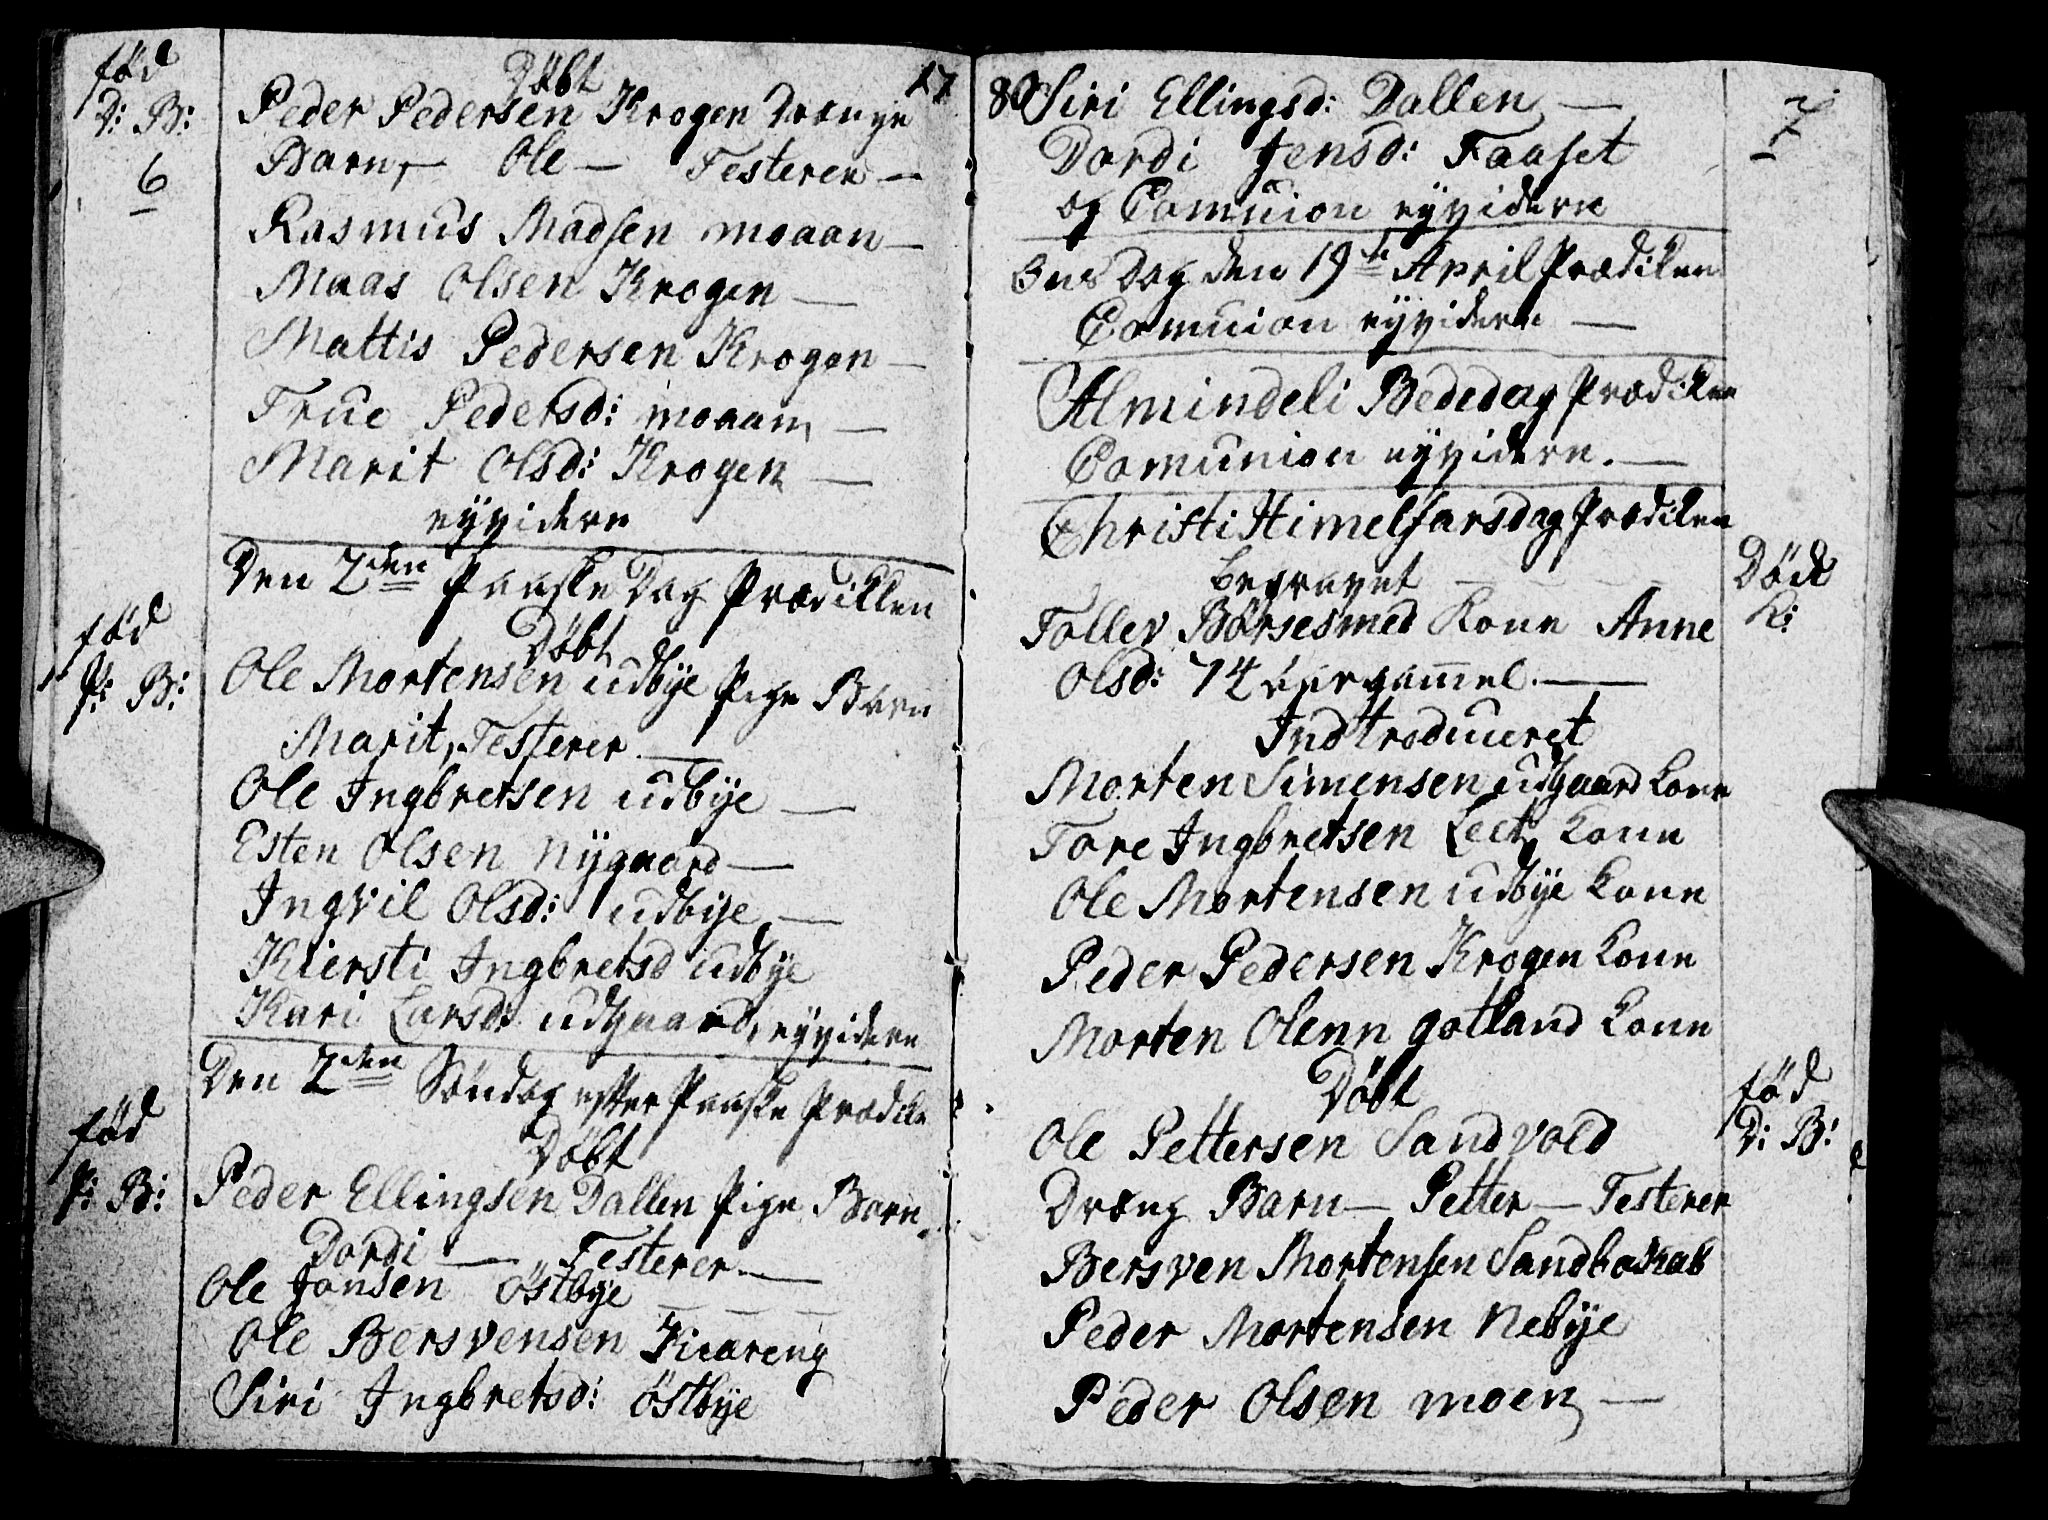 17
fød
D: B:
6
Döbt
Peder Pedersen Krogen Drænge
Barn, — Ole — Testerer —
Rasmus Madsen moaan —
Maas Olsen Krogen —
Mattis Pedersen Krogen —
True Pedersd: moaan, —
Marit Olsd: Krogen —
eyvidere
Den 2den Paaske Dag Prædiken
fød
P: B:
Döbt
Ole Mortensen udbye Pige Barn
Marit, Testerer —
Ole Ingbretsen udbye —
Esten Olsen nygaard —
Ingvil Olsd: udbye —
Kiersti Ingbretsd udbye
Kari Larsd: udtgaard, eyvidere
Den 2den Söndag efter Paaske Prædike
fød
P: B:
Döbt
Peder Ellingsen Dallen Pige Barn
Dordi — Testerer —
Ole Jonsen östbye
Ole Bersvensen Kiæreng
Siri Ingbretsd: östbye
80
7
Siri Ellingsd: Dallen —
Dordi Jensd: Faaset
og Comuion eyvidere
Ons Dag den 19te April Prædiken
Comuion eyvidere —
Almindeli Bededag Prædiken
Comunion eyvidere. —
Christi Himelfarsdag Prædiken
Begravet
Død
K:
Tollev Börsesmed Kone Anne
Olsd: 74 aar gammel. —
Indtroduceret
Morten Simensen udtgaard Kone
Tore Ingbretsen Leet, Kone
Ole Mortensen udbye Kone
Peder Pedersen Krogen Kone
Morten Olenn gotland Kone
Döbt
fød
D: B:
Ole Pettersen Sandvold
Dræng Barn — Petter — Testerer
Bersven Mortensen Sandbakak
Peder Mortensen Nebye
Peder Olsen moen, —